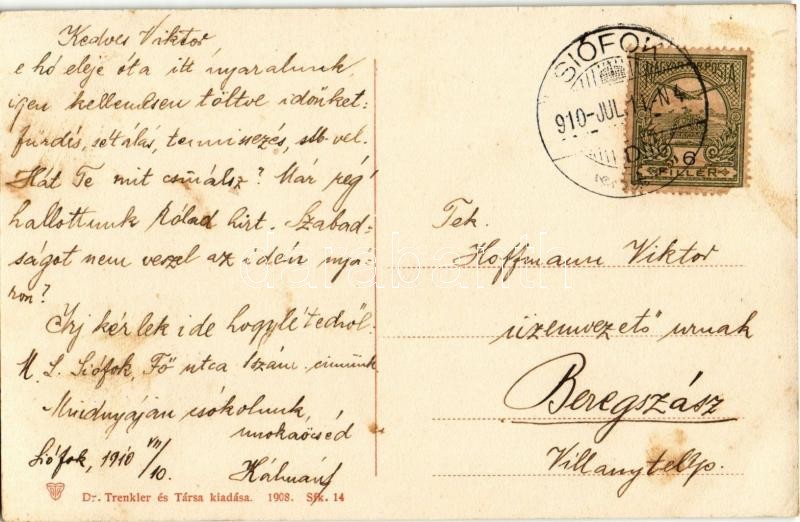 Kedves Viktor
e hó eleje óta itt nyaralunk
igen kellemesen töltve időnket-
fürdés, sétálás, stb-vel.
Hát Te mit csinálsz? Már rég
hallottunk Rólad hirt. Szabad-
ságot nem veszel az idén nyá-
ron?
Irj kérlek ide hogylétedről.
Siófok, Fő utca 1 szám. cimünk
Mindnyájan csókolunk,
unokaöcséd
Siófok, 1910 VII/10.
Kálmán
Dr. Trenkler és Társa kiadása. 1908. Sfk. 14
SIÓFOK
910-JUL.11-N4
MAGYAR KIR. POSTA
6
FILLÉR
Tek.
Hoffmann Viktor
üzemvezető urnak
Beregszász
Villanytelep.
darabanth